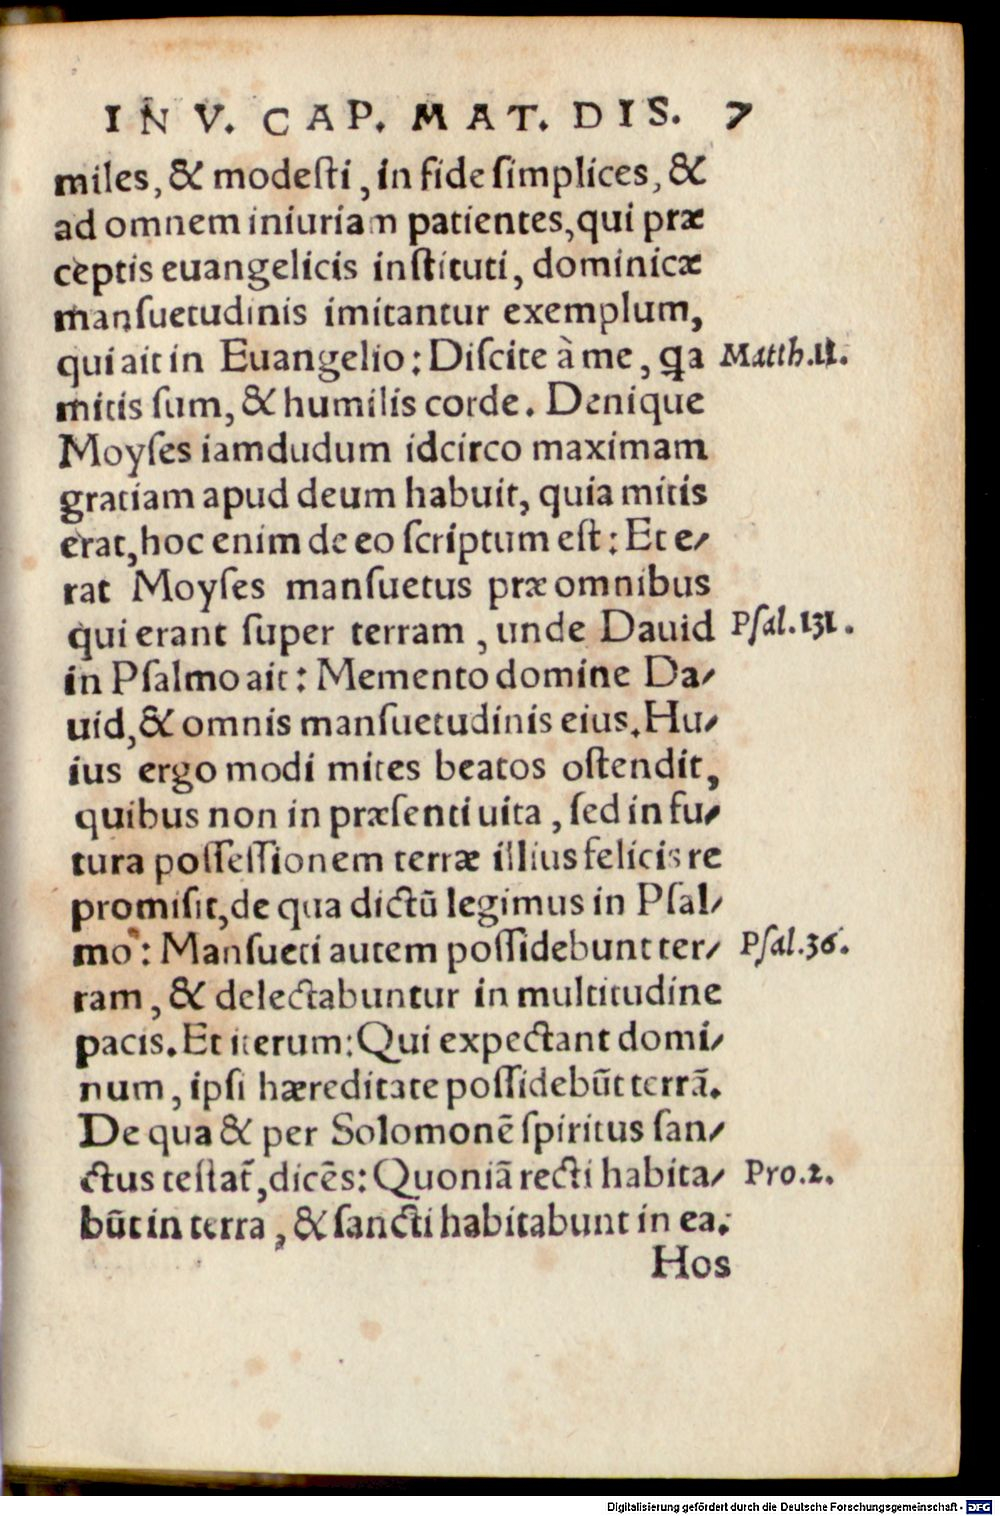 IN V. CAP. MAT. DIS. 7
miles, & modeſti, in fide ſimplices, &
ad omnem iniuriam patientes, qui præ
ceptis euangelicis inſtituti, dominicæ
manſuetudinis imitantur exemplum,
qui ait in Euangelio: Diſcite à me, ꝗa Matth.11.
mitis ſum, & humilis corde. Denique
Moyſes iamdudum idcirco maximam
gratiam apud deum habuit, quia mitis
erat, hoc enim de eo ſcriptum eſt: Et e⸗
rat Moyſes manſuetus præ omnibus
qui erant ſuper terram, unde Dauid Pſal.131.
in Pſalmo ait: Memento domine Da⸗
uid, & omnis manſuetudinis eius. Hu⸗
ius ergo modi mites beatos oſtendit,
quibus non in præſenti uita, ſed in fu⸗
tura poſſeſſionem terræ illius felicis re
promiſit, de qua dictū legimus in Pſal⸗
mo: Manſueti autem poſſidebunt ter⸗ Pſal.36.
ram, & delectabuntur in multitudine
pacis. Et iterum: Qui expectant domi⸗
num, ipſi hæreditate poſſidebūt terrā.
De qua & per Solomonē ſpiritus ſan⸗
ctus teſtat̃, dicēs: Quoniā recti habita⸗ Pro.2.
būt in terra, & ſancti habitabunt in ea:
Hos
Digitalisierung gefördert durch die Deutsche Forschungsgemeinschaft - DFG